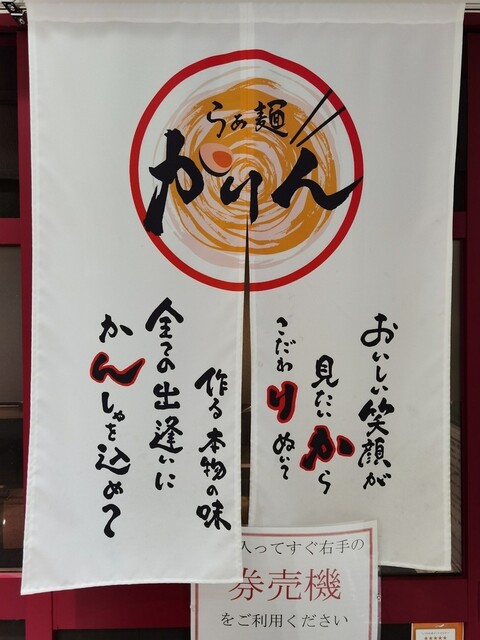 らぁ麺
かりん
おいしい笑顔が
見たいから
こだわりぬいて
作る本物の味
全ての出逢いに
かんしゃを込めて
入ってすぐ右手の
券売機
をご利用ください